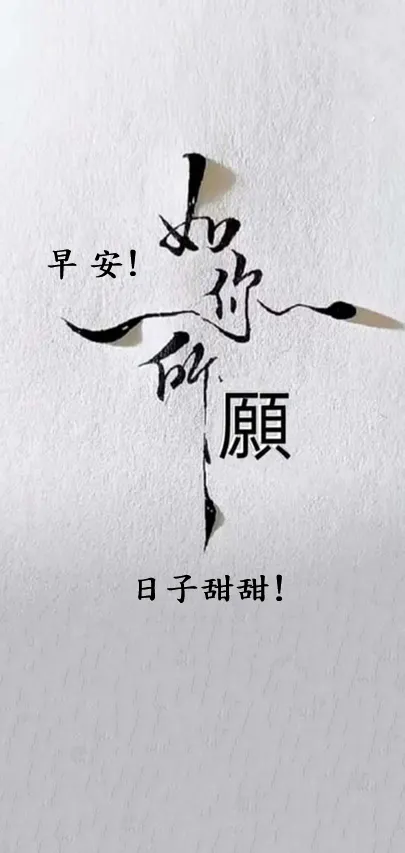 早安!
如你所願
日子甜甜!